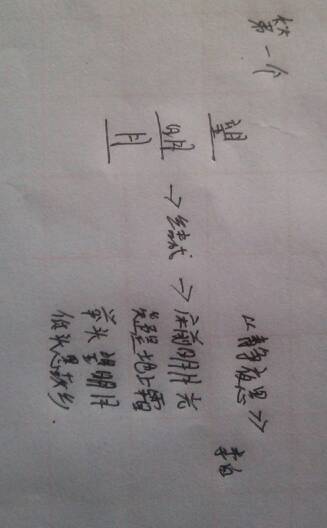 第一个
《静夜思》
李白
望
明 → → 床前明月光
月
疑是地上霜
举头望明月
低头思故乡